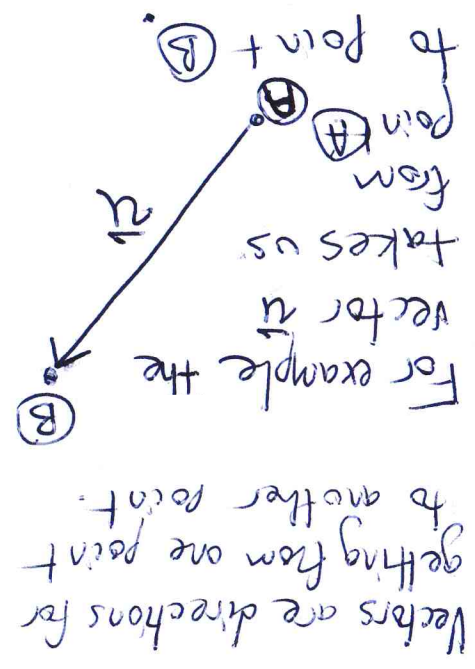 Vectors are directions for
getting from one point
to another point.
For example the
vector u⃗
takes us
from
point Ⓐ
to point Ⓑ.
Ⓑ
u⃗
Ⓐ